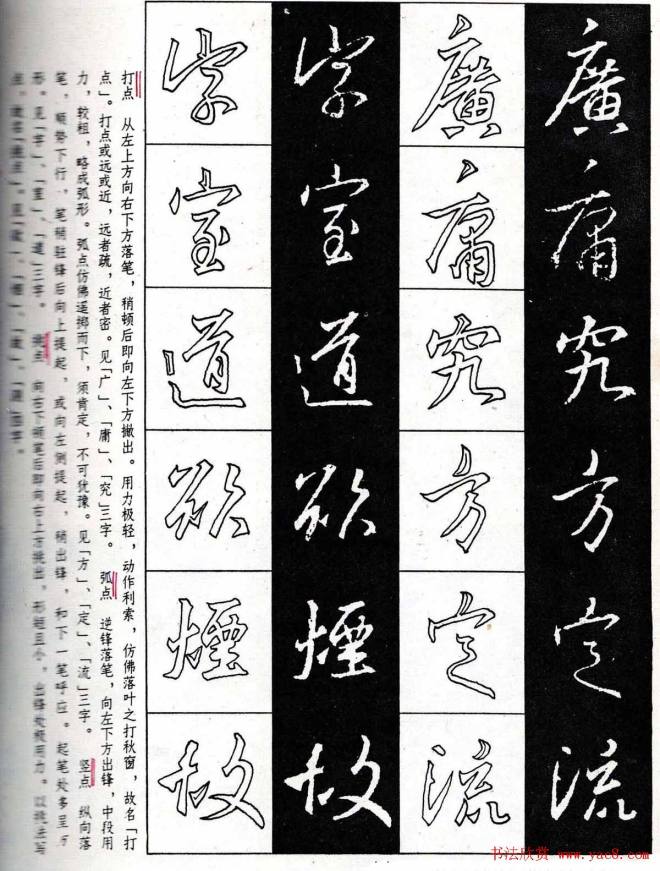 廣庸究方定流
廣庸究方定流
字室道欲煙故
字室道欲煙故
打点 从左上方向右下方落笔，稍顿后即向左下方撇出。用力极轻，动作利索，仿佛落叶之打秋窗，故名「打
点」。打点或远或近，远者疏，近者密。见「广」、「庸」、「究」三字。 弧点 逆锋落笔，向左下方出锋，中段用
力，较粗，略成弧形。弧点仿佛遥掷而下，须肯定，不可犹豫。见「方」、「定」、「流」三字。 竖点 纵向落
笔，顺势下行，笔稍驻锋后向上提起，或向左侧提起，稍出锋，和下一笔呼应。起笔处多呈方
形。见「字」、「室」、「道」三字。 挑点 向右下顿笔后即向右上方挑出，形短且小，出锋处极用力。以挑法写
点，故名「挑点」。见「欲」、「煙」、「故」、
书法欣赏 www.yac8.com